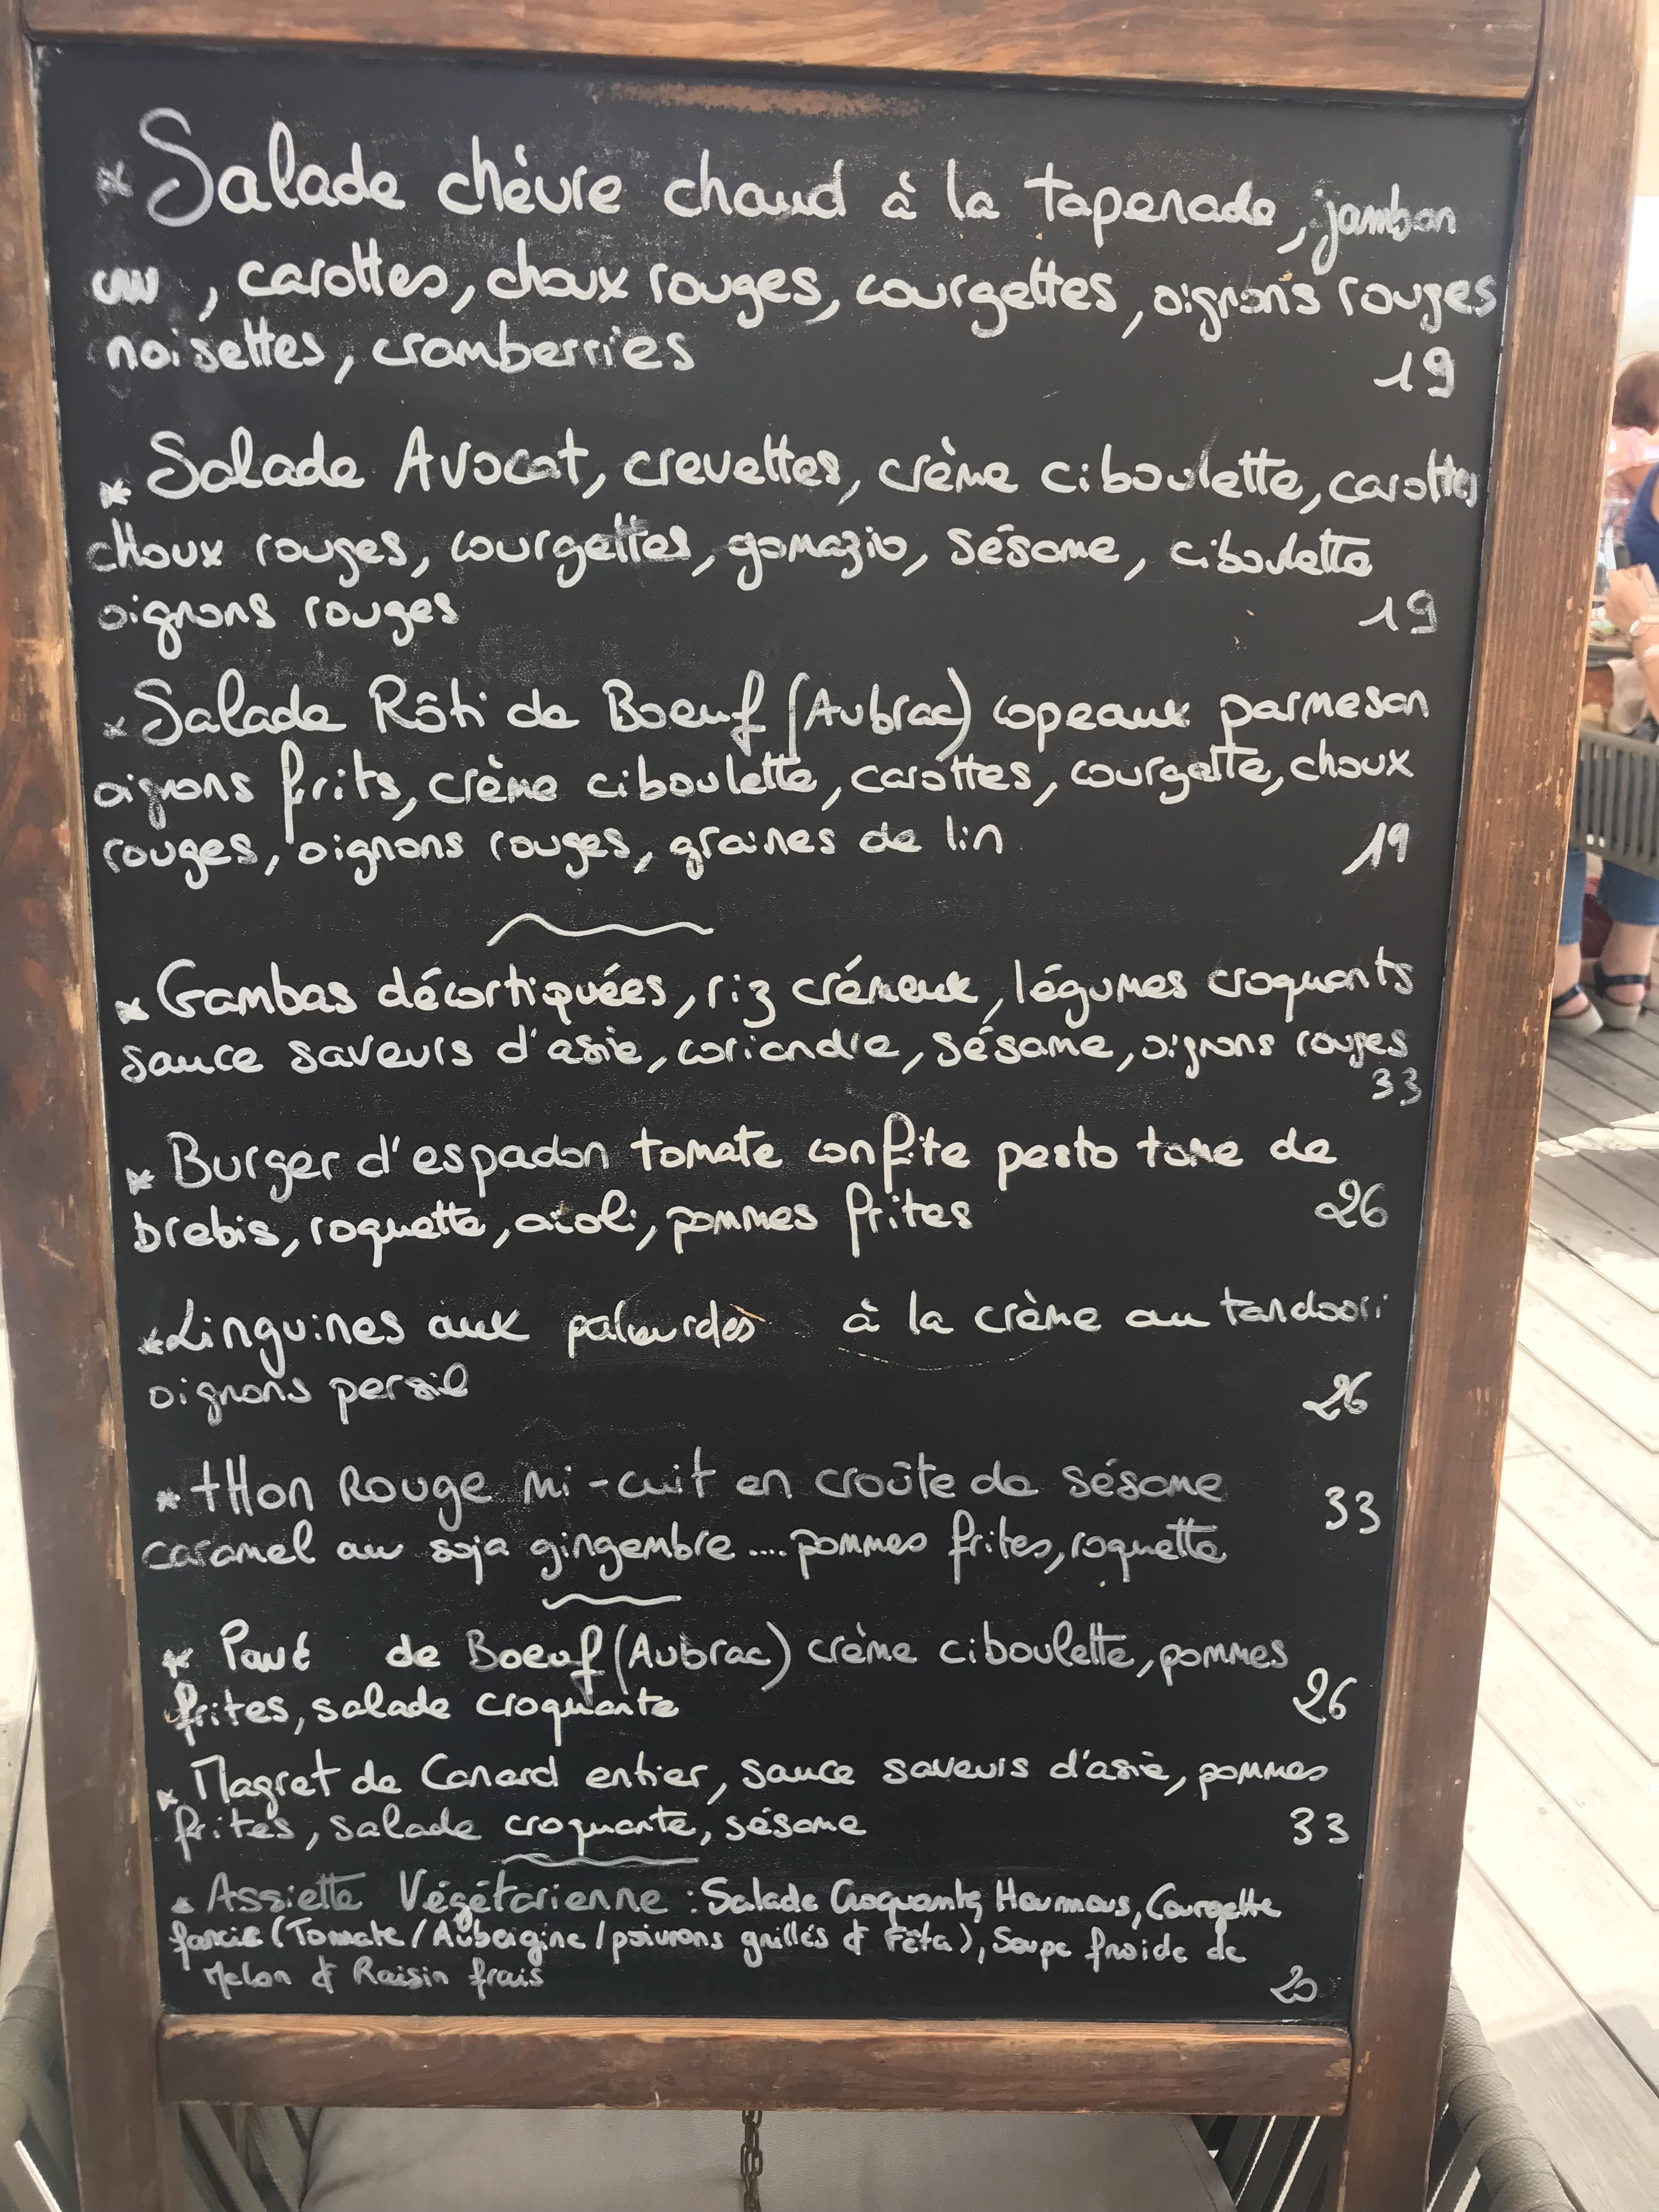 * Salade chèvre chaud à la tapenade, jambon
cru, carottes, choux rouges, courgettes, oignons rouges
noisettes, cramberries
19
* Salade Avocat, crevettes, crème ciboulette, carottes
choux rouges, courgettes, gomazio, sésame, ciboulette
oignons rouges
19
* Salade Rôti de Boeuf (Aubrac) copeaux parmesan
oignons frits, crème ciboulette, carottes, courgette, choux
rouges, oignons rouges, graines de lin
19
* Gambas décortiquées, riz crémeux, légumes croquants
sauce saveurs d'asie, coriandre, sésame, oignons rouges
33
* Burger d'espadon tomate confite pesto tome de
brebis, roquette, aïoli, pommes frites
26
* Linguines aux palourdes à la crème au tandoori
oignons persil
26
* tHon Rouge Mi-cuit en croûte de sésame
33
caramel au soja gingembre .... pommes frites, roquette
* Pavé de Boeuf (Aubrac) crème ciboulette, pommes
frites, salade croquante
26
* Magret de Canard entier, sauce saveurs d'asie, pommes
frites, salade croquante, sésame
33
* Assiette Végétarienne : Salade Croquante, Houmous, Courgette
farcie (Tomate / Aubergine / poivrons grillés & Fêta), Soupe froide de
Melon & Raisin frais
20